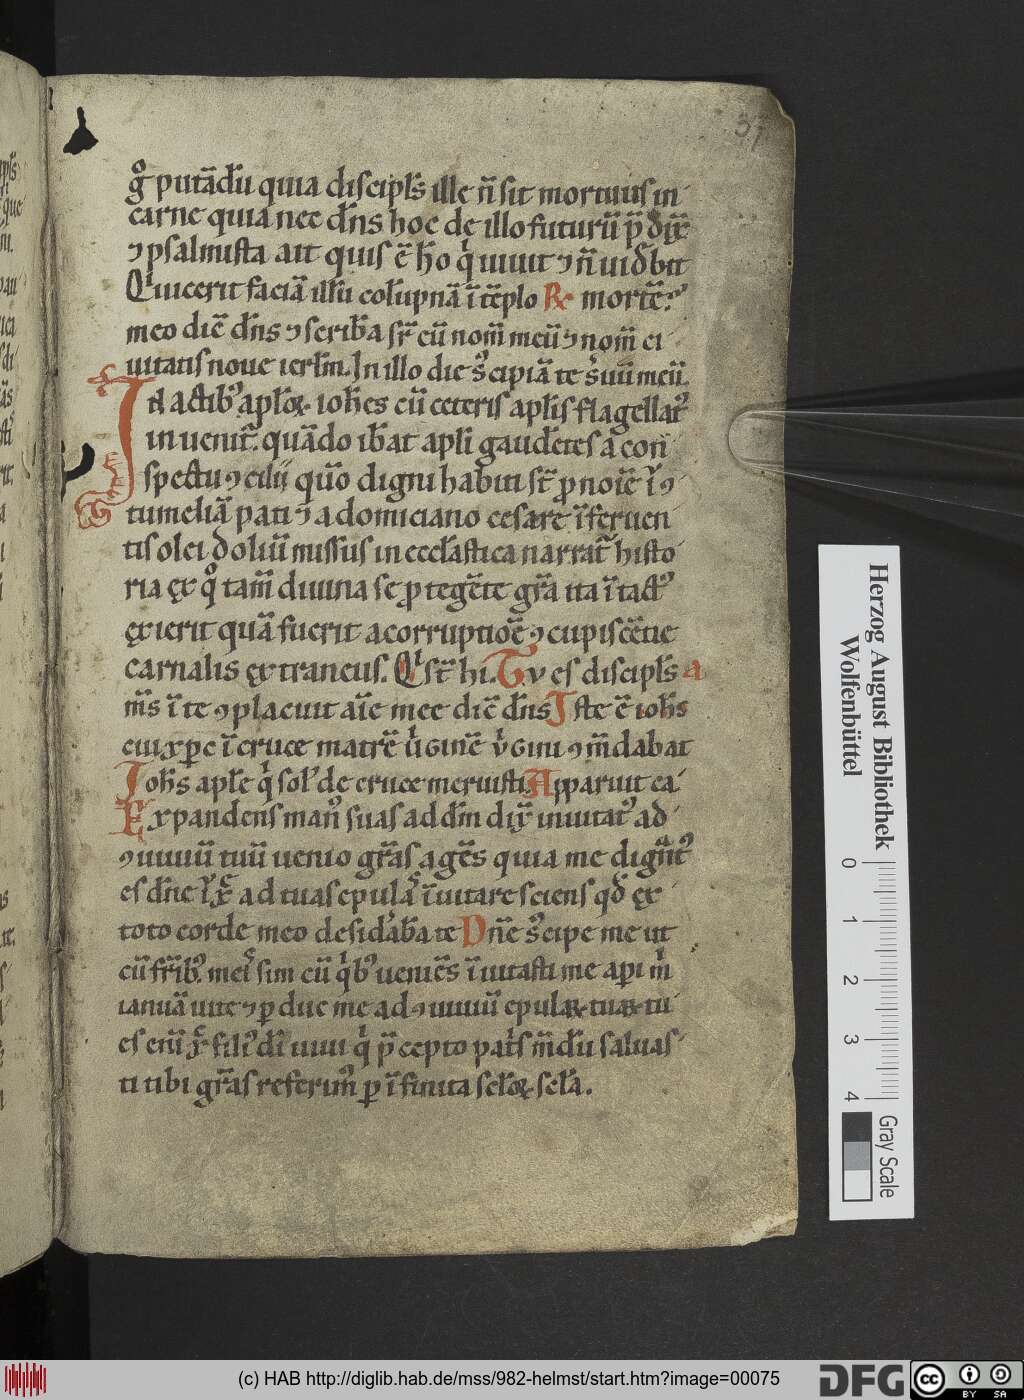 31
gͦ putādū quia discipl̄s ille n̄ sit mortuus in
carne quia nec dn̄s hoc de illo futurū p̄dix̄
⁊ psalmista ait quis ē hō qͥ uiuit ⁊ n̄ uidb̄it
Qͥ uicerit faciā illū colūpnā ī tēplo R̄e mortē
meo dic̄ dn̄s ⁊ scribā sr̄ eū nom̄ meū ⁊ nom̄ ci
uitatis noue ierl̄m. In illo die sͨipiā te sͥuū meū
In actibꝰ aplōꝝ ioh̄es cū ceteris aplīs flagellatꝰ
inuenit̄. quādo ib̄at apl̄i gaudētes a con
spectu ꝯcilii qūo digni habiti st̄ ꝓ noīe ī ꝯ
tumeliā pati ⁊ a domiciano cesare ī feruen
tis olei doliū missus in eccl̄astica narrat̄ histo
ria ex qͦ tam̄ diuina se ꝓtegēte gr̄a ita ītactꝰ
exierit quā fuerit a corruptiōe ꝯcupiscētie
carnalis extraneus. Qͥ st̄ hi. Tu es discipl̄s a
m̄s ī te ꝯplacuit aīe mee dic̄ dn̄s Iste ē ioh̄s
cui xp̄c ī cruce matrē uͥginē uͥgini ꝯm̄dabat
Ioh̄s apl̄e qͥ solꝰ de cruce meruisti. Apparuit ca
Expandens manꝰ suas ad dm̄ dix̄ inuitatꝰ ad
ꝯuiuiū tuū uenio gr̄as agēs quia me dignatꝰ
es dn̄e ad tuas epulas īuitare sciens qd̄ ex
toto corde meo desidab̄a te Dn̄e sͨipe me ut
cū fr̄ibꝰ meis sim cū qͥbꝰ ueniēs īuitasti me api m̄
ianuā uite ⁊ ꝑduc me ad ꝯuiuiū epulaꝝ tuaꝝ tu
es eni xp̄s filiꝰ dī uiui qͥ p̄cepto patͥs mūdū saluas
ti tibi gr̄as referimꝰ ꝑ īfinita sclōꝝ scl̄a.
Herzog August Bibliothek
Wolfenbüttel
0 1 2 3 4
Gray Scale
(c) HAB http://diglib.hab.de/mss/982-helmst/start.htm?image=00075
DFG
cc BY SA